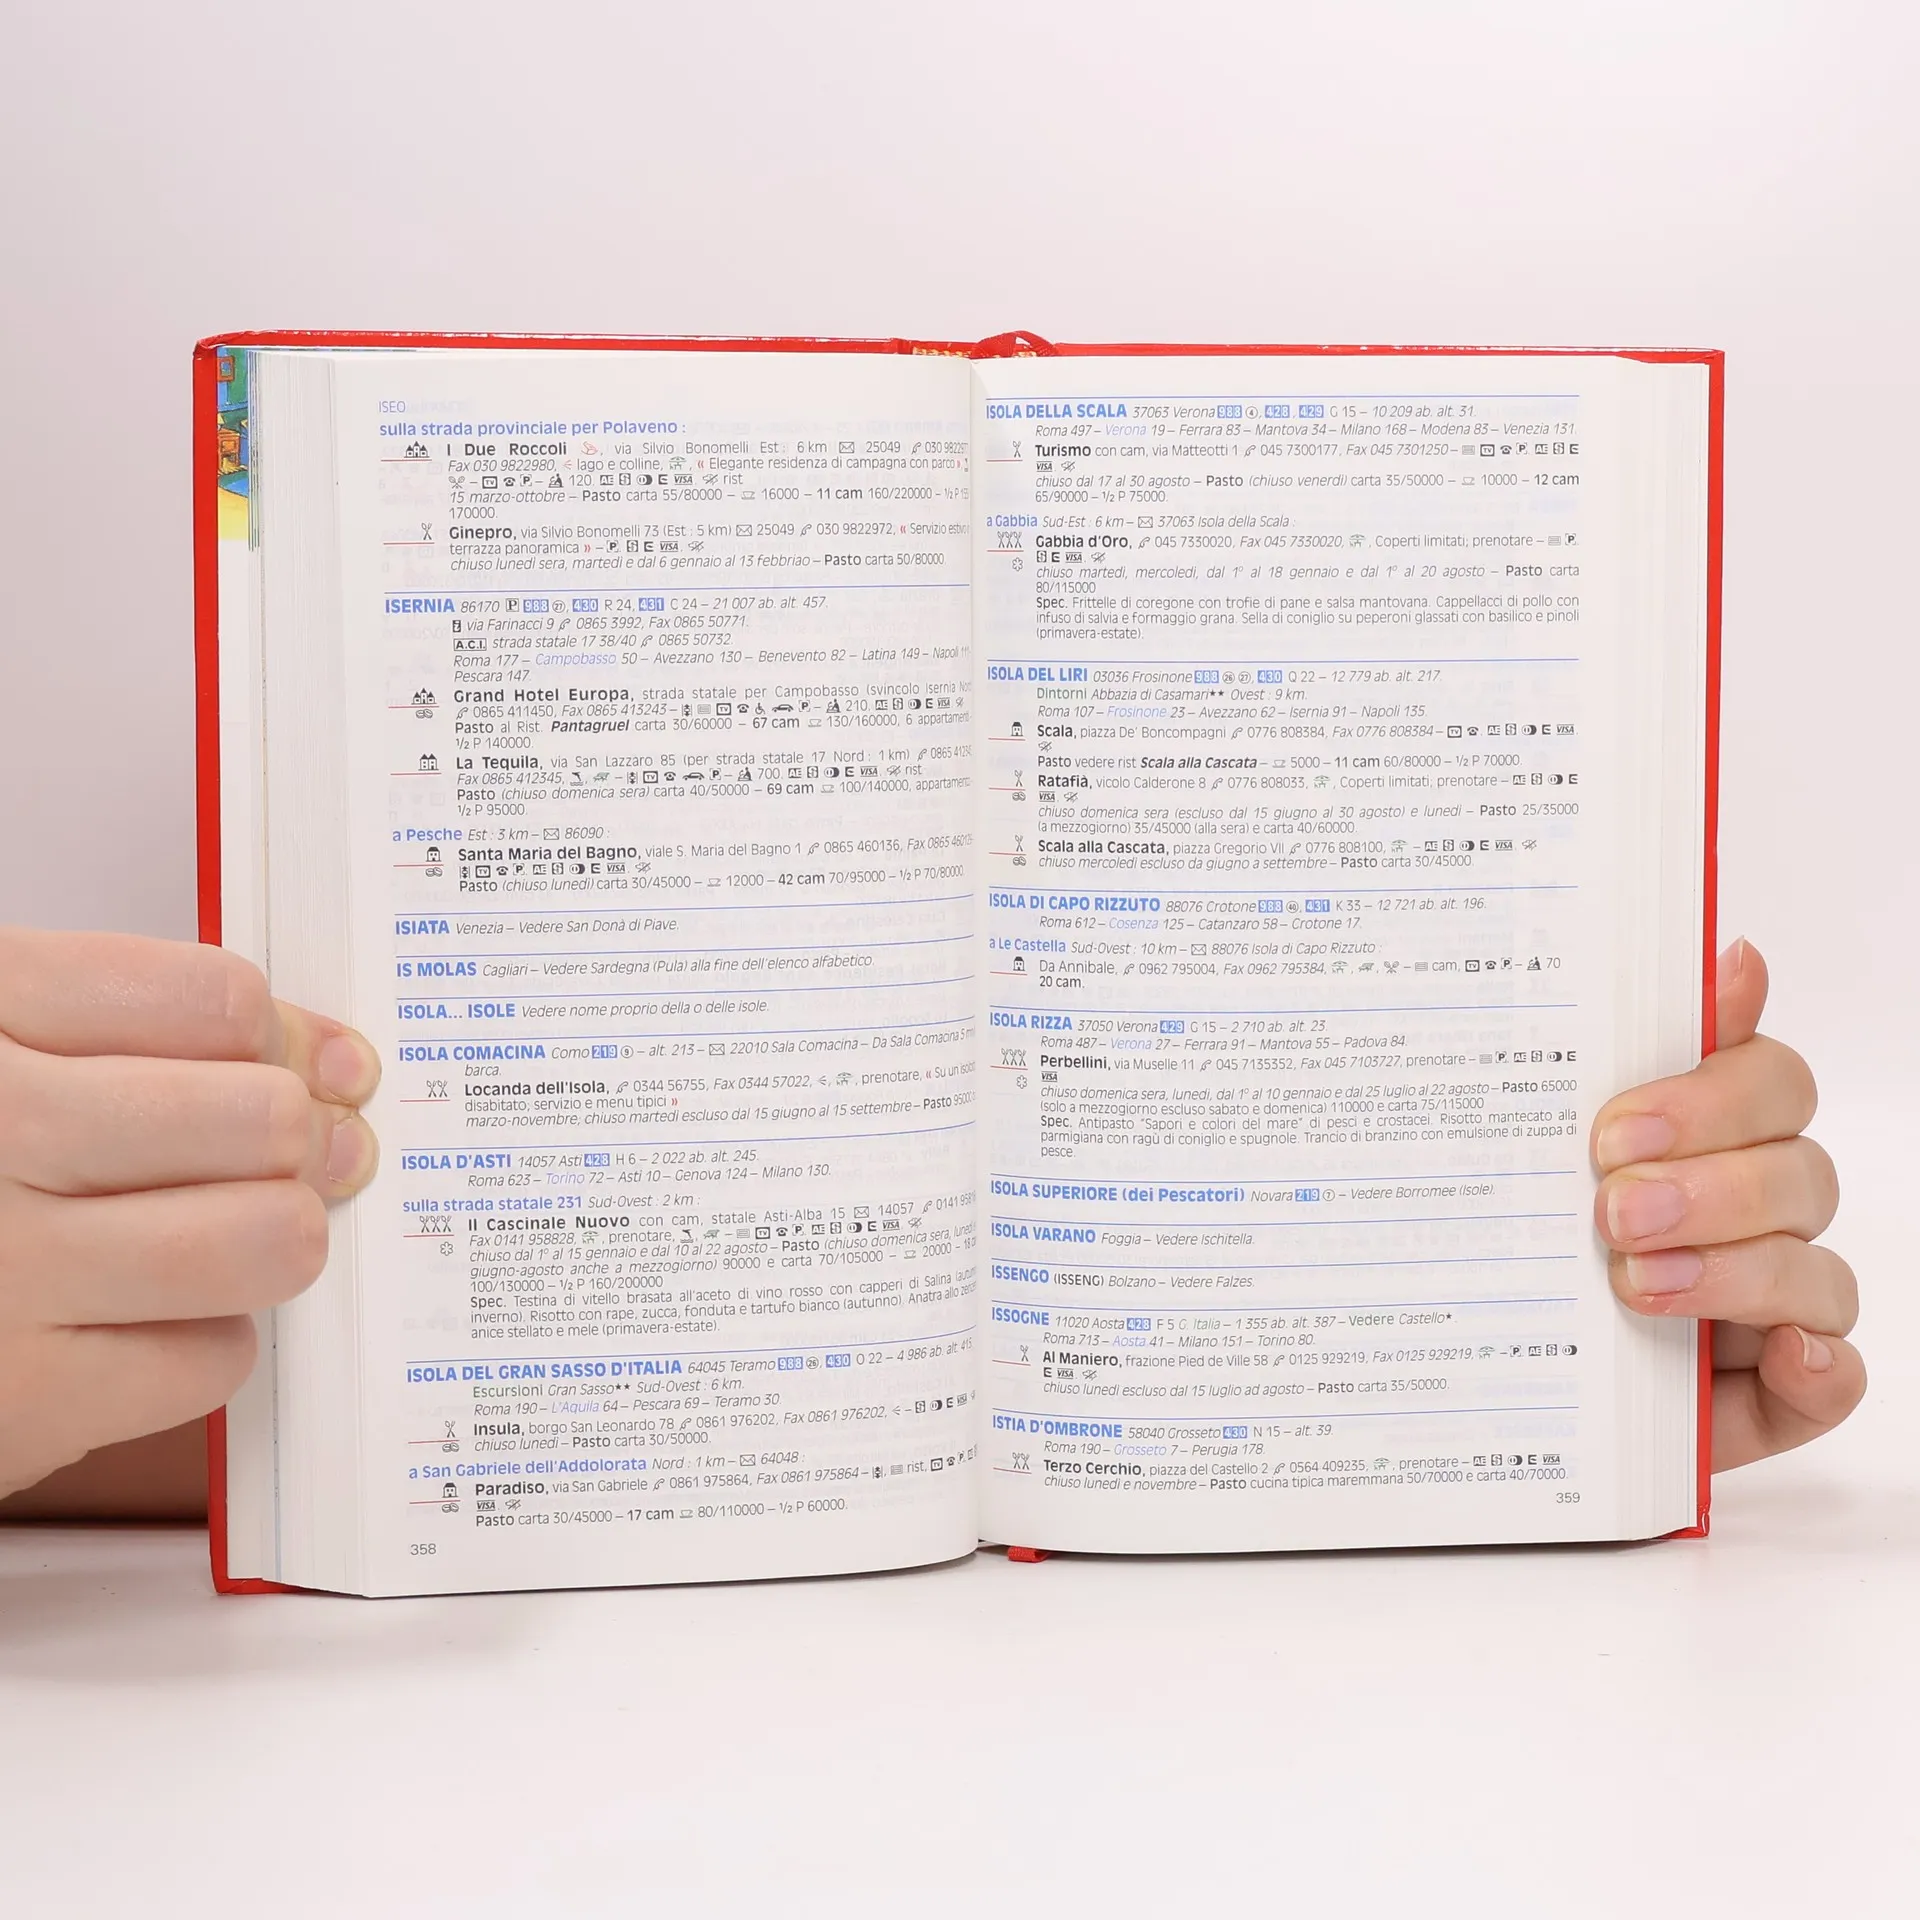 ISEO
sulla strada provinciale per Polaveno :
I Due Roccoli , via Silvio Bonomelli Est : 6 km 25049 030 982297
Fax 030 9822980, < lago e colline, , « Elegante residenza di campagna con parco »,
– TV P – 120. AE S E VISA rist
15 marzo-ottobre – Pasto carta 55/80000 – 16000 – 11 cam 160/220000 – ½ P
170000.
Ginepro, via Silvio Bonomelli 73 (Est : 5 km) 25049 030 9822972, « Servizio estivo
terrazza panoramica » – P. S E VISA
chiuso lunedì sera, martedì e dal 6 gennaio al 13 febbriao – Pasto carta 50/80000
ISERNIA 86170 P 988 27, 430 R 24, 431 C 24 – 21 007 ab. alt. 457.
via Farinacci 9 0865 3992, Fax 0865 50771.
A.C.I. strada statale 17 38/40 0865 50732.
Roma 177 – Campobasso 50 – Avezzano 130 – Benevento 82 – Latina 149 – Napoli
Pescara 147.
Grand Hotel Europa, strada statale per Campobasso (svincolo Isernia Nord
0865 411450, Fax 0865 413243 – TV P – 210. AE S E VISA
Pasto al Rist. Pantagruel carta 30/60000 – 67 cam 130/160000, 6 appartamenti
½ P 140000.
La Tequila, via San Lazzaro 85 (per strada statale 17 Nord : 1 km) 0865 41234
Fax 0865 412345, , – TV P – 700. AE S E VISA. rist
Pasto (chiuso domenica sera) carta 40/50000 – 69 cam 100/140000, appartamento
½ P 95000.
a Pesche Est : 3 km – 86090 :
Santa Maria del Bagno, viale S. Maria del Bagno 1 0865 460136, Fax 0865
TV P. AE S E VISA.
Pasto (chiuso lunedì) carta 30/45000 – 12000 – 42 cam 70/95000 – ½ P 70/80000.
ISIATA Venezia – Vedere San Donà di Piave.
IS MOLAS Cagliari – Vedere Sardegna (Pula) alla fine dell'elenco alfabetico.
ISOLA... ISOLE Vedere nome proprio della o delle isole.
ISOLA COMACINA Como 219 9 – alt. 213 – 22010 Sala Comacina – Da Sala Comacina 5 mn
barca.
Locanda dell'Isola, 0344 56755, Fax 0344 57022, <, , prenotare, « Su un isolotto
disabitato; servizio e menu tipici »
marzo-novembre; chiuso martedì escluso dal 15 giugno al 15 settembre – Pasto 95000
ISOLA D'ASTI 14057 Asti 428 H 6 – 2 022 ab. alt. 245.
Roma 623 – Torino 72 – Asti 10 – Genova 124 – Milano 130.
sulla strada statale 231 Sud-Ovest : 2 km :
Il Cascinale Nuovo con cam, statale Asti-Alba 15 14057 0141 958
Fax 0141 958828, , prenotare, , – TV P. AE S E VISA.
chiuso dal 1° al 15 gennaio e dal 10 al 22 agosto – Pasto (chiuso domenica sera, lunedì
giugno-agosto anche a mezzogiorno) 90000 e carta 70/105000 – 20000 – 18
100/130000 – ½ P 160/200000
Spec. Testina di vitello brasata all'aceto di vino rosso con capperi di Salina (autunno
inverno). Risotto con rape, zucca, fonduta e tartufo bianco (autunno). Anatra allo
anice stellato e mele (primavera-estate).
ISOLA DEL GRAN SASSO D'ITALIA 64045 Teramo 988 26, 430 O 22 – 4 986 ab. alt. 415.
Escursioni Gran Sasso★★ Sud-Ovest : 6 km.
Roma 190 – L'Aquila 64 – Pescara 69 – Teramo 30.
Insula, borgo San Leonardo 78 0861 976202, Fax 0861 976202, < – S E VISA
chiuso lunedì – Pasto carta 30/50000.
a San Gabriele dell'Addolorata Nord : 1 km – 64048 :
Paradiso, via San Gabriele 0861 975864, Fax 0861 975864 – , rist, TV P.
VISA.
Pasto carta 30/45000 – 17 cam 80/110000 – ½ P 60000.
358
ISOLA DELLA SCALA 37063 Verona 988 4, 428, 429 G 15 – 10 209 ab. alt. 31.
Roma 497 – Verona 19 – Ferrara 83 – Mantova 34 – Milano 168 – Modena 83 – Venezia 131.
Turismo con cam, via Matteotti 1 045 7300177, Fax 045 7301250 – TV P. AE S E
VISA
chiuso dal 17 al 30 agosto – Pasto (chiuso venerdì) carta 35/50000 – 10000 – 12 cam
65/90000 – ½ P 75000.
a Gabbia Sud-Est : 6 km – 37063 Isola della Scala :
Gabbia d'Oro, 045 7330020, Fax 045 7330020, , Coperti limitati; prenotare – P.
S E VISA.
chiuso martedì, mercoledì, dal 1° al 18 gennaio e dal 1° al 20 agosto – Pasto carta
80/115000
Spec. Frittelle di coregone con trofie di pane e salsa mantovana. Cappellacci di pollo con
infuso di salvia e formaggio grana. Sella di coniglio su peperoni glassati con basilico e pinoli
(primavera-estate).
ISOLA DEL LIRI 03036 Frosinone 988 26 27, 430 Q 22 – 12 779 ab. alt. 217.
Dintorni Abbazia di Casamari★★ Ovest : 9 km.
Roma 107 – Frosinone 23 – Avezzano 62 – Isernia 91 – Napoli 135.
Scala, piazza De' Boncompagni 0776 808384, Fax 0776 808384 – TV . AE S E VISA.
Pasto vedere rist Scala alla Cascata – 5000 – 11 cam 60/80000 – ½ P 70000.
Ratafià, vicolo Calderone 8 0776 808033, , Coperti limitati; prenotare – AE S E
VISA.
chiuso domenica sera (escluso dal 15 giugno al 30 agosto) e lunedì – Pasto 25/35000
(a mezzogiorno) 35/45000 (alla sera) e carta 40/60000.
Scala alla Cascata, piazza Gregorio VII 0776 808100, – AE S E VISA.
chiuso mercoledì escluso da giugno a settembre – Pasto carta 30/45000.
ISOLA DI CAPO RIZZUTO 88076 Crotone 988 40, 431 K 33 – 12 721 ab. alt. 196.
Roma 612 – Cosenza 125 – Catanzaro 58 – Crotone 17.
a Le Castella Sud-Ovest : 10 km – 88076 Isola di Capo Rizzuto :
Da Annibale, 0962 795004, Fax 0962 795384, , , – cam, TV P – 70
20 cam.
ISOLA RIZZA 37050 Verona 429 G 15 – 2 710 ab. alt. 23.
Roma 487 – Verona 27 – Ferrara 91 – Mantova 55 – Padova 84.
Perbellini, via Muselle 11 045 7135352, Fax 045 7103727, prenotare – P. AE S E
VISA
chiuso domenica sera, lunedì, dal 1° al 10 gennaio e dal 25 luglio al 22 agosto – Pasto 65000
(solo a mezzogiorno escluso sabato e domenica) 110000 e carta 75/115000
Spec. Antipasto "Sapori e colori del mare" di pesci e crostacei. Risotto mantecato alla
parmigiana con ragù di coniglio e spugnole. Trancio di branzino con emulsione di zuppa di
pesce.
ISOLA SUPERIORE (dei Pescatori) Novara 219 7 – Vedere Borromee (Isole).
ISOLA VARANO Foggia – Vedere Ischitella.
ISSENGO (ISSENG) Bolzano – Vedere Falzes.
ISSOGNE 11020 Aosta 428 F 5 G. Italia – 1 355 ab. alt. 387 – Vedere Castello★.
Roma 713 – Aosta 41 – Milano 151 – Torino 80.
Al Maniero, frazione Pied de Ville 58 0125 929219, Fax 0125 929219, – P. AE S
E VISA.
chiuso lunedì escluso dal 15 luglio ad agosto – Pasto carta 35/50000.
ISTIA D'OMBRONE 58040 Grosseto 430 N 15 – alt. 39.
Roma 190 – Grosseto 7 – Perugia 178.
Terzo Cerchio, piazza del Castello 2 0564 409235, , prenotare – AE S E VISA
chiuso lunedì e novembre – Pasto cucina tipica maremmana 50/70000 e carta 40/70000.
359